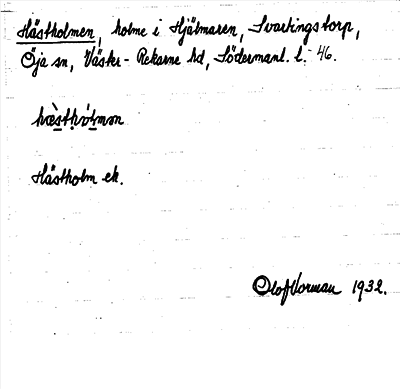 Hästholmen, holme i Hjälmaren, Svartingstorp,
Öja sn, Väster-Rekarne hd, Södermanl. l. 46.
hæ̀sthòlmən
Hästholm ek.
Olof Vorman 1932.